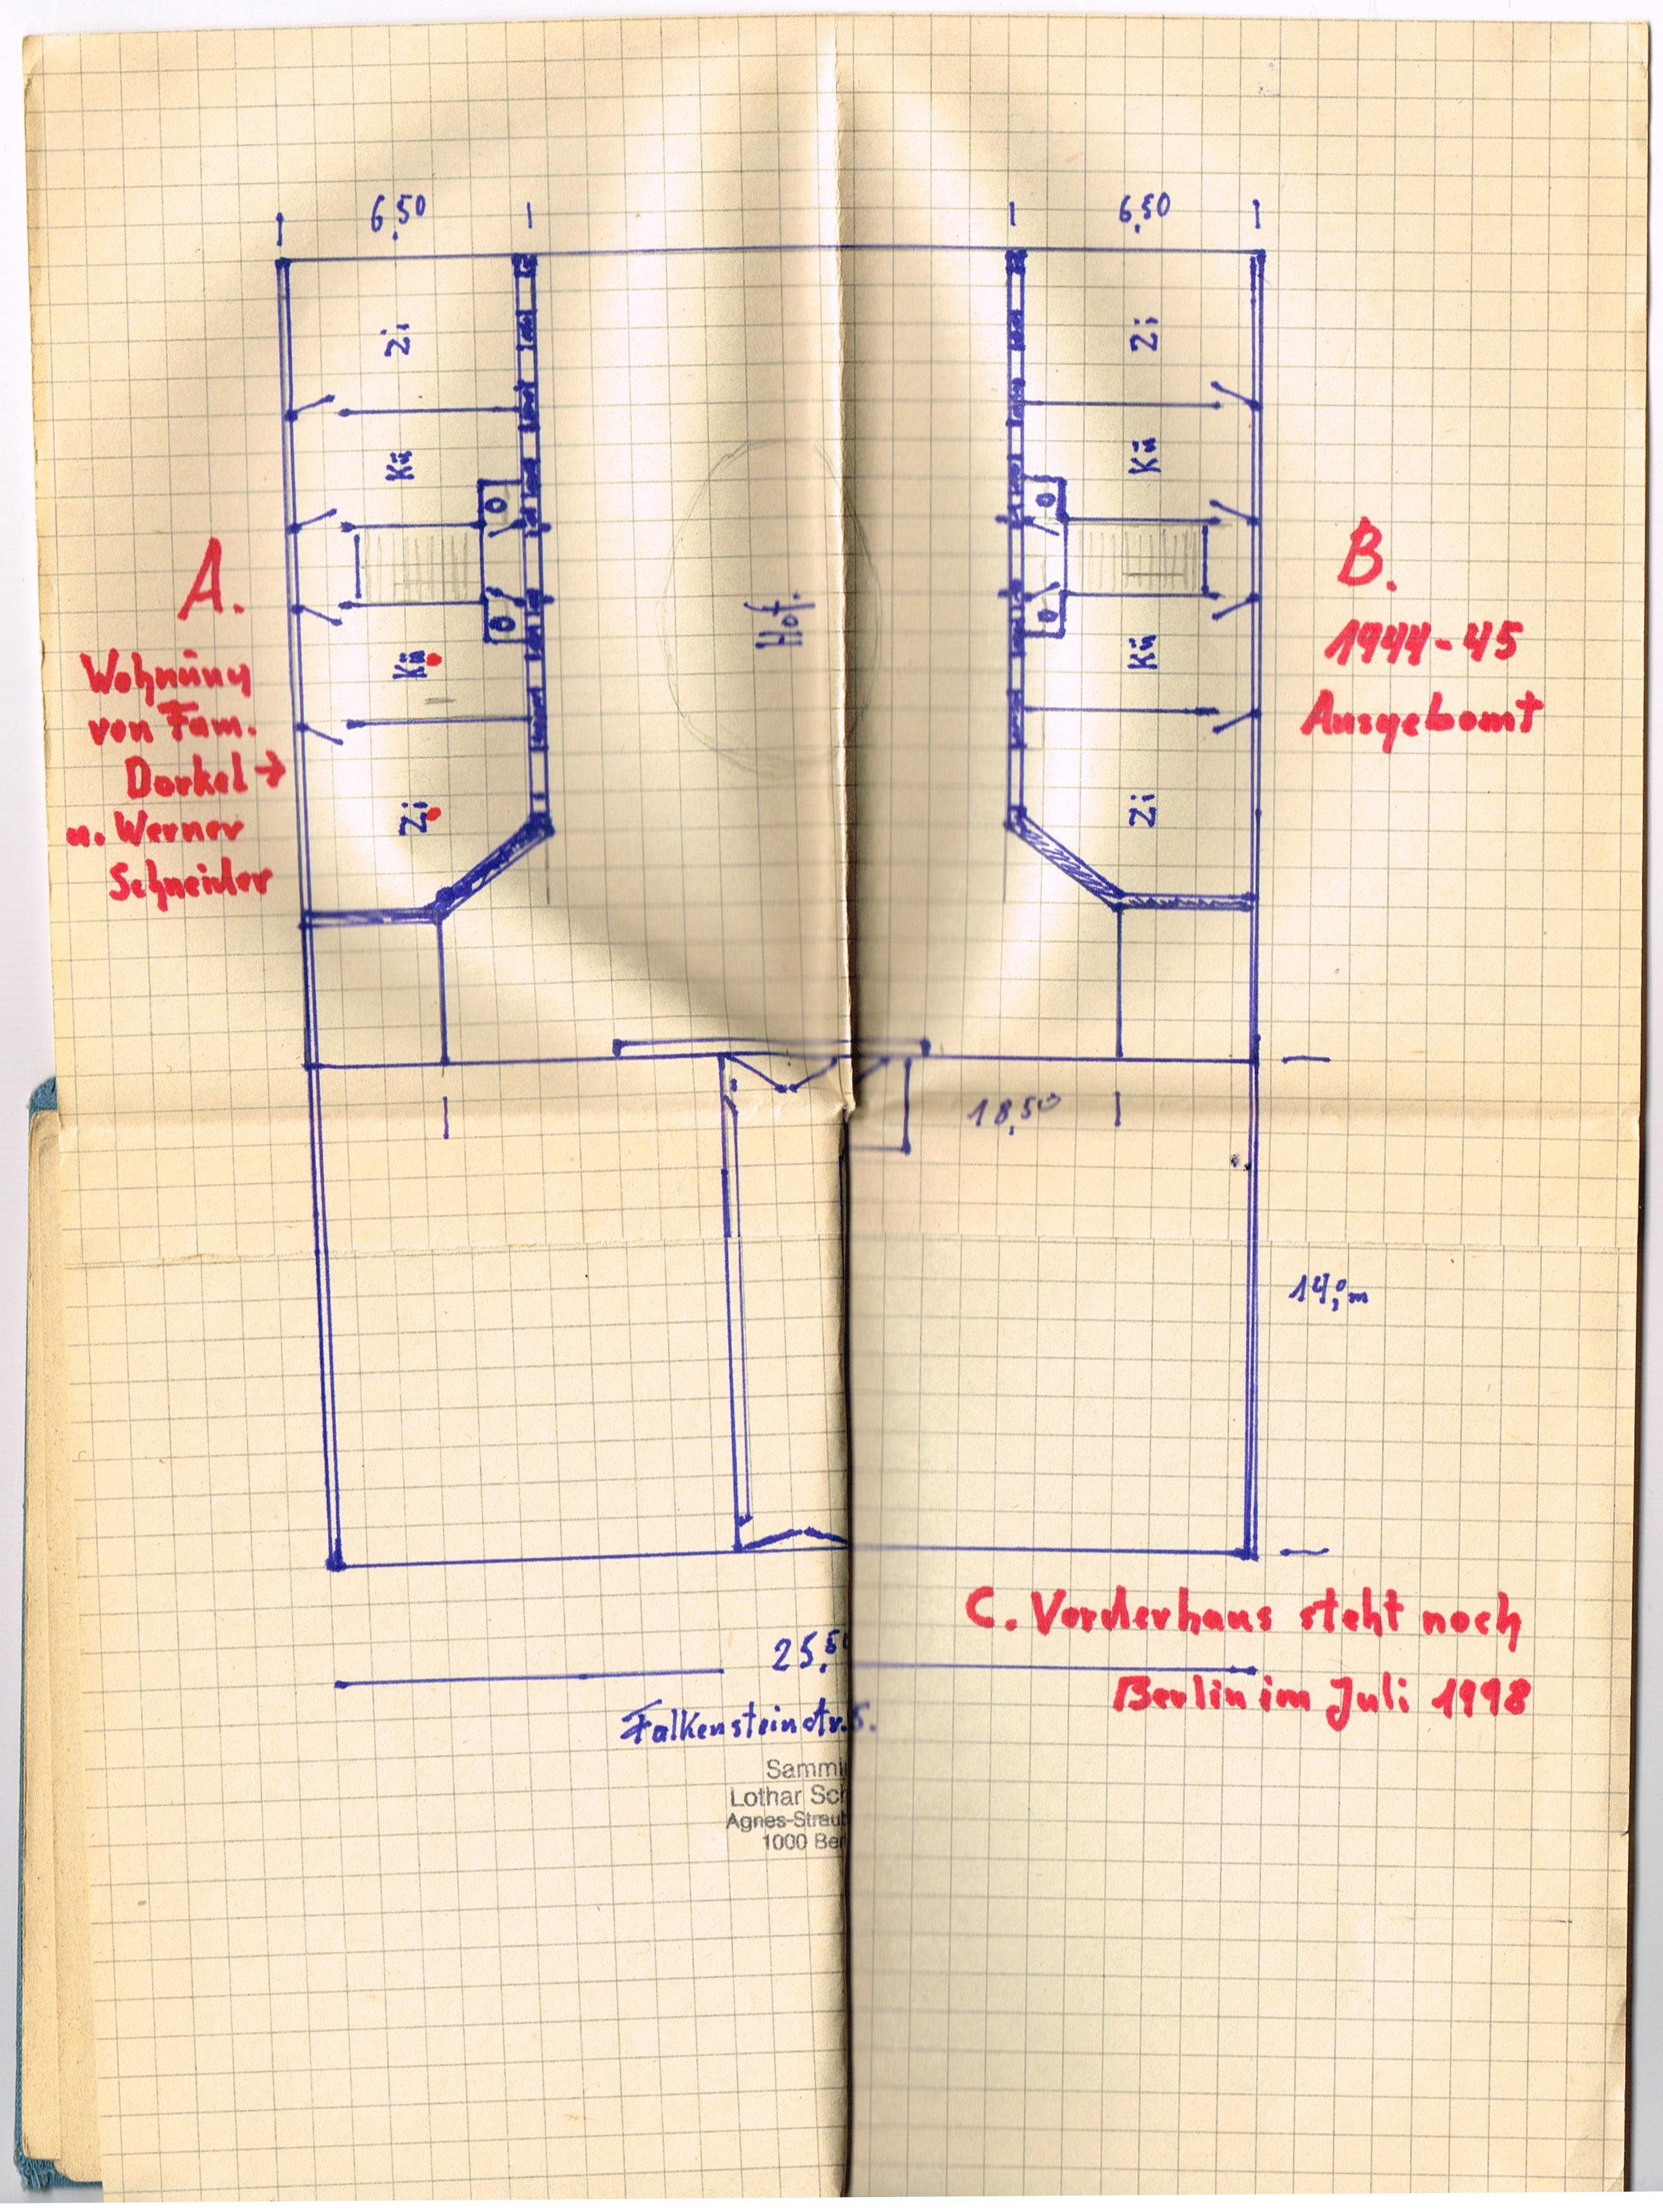 6,50
6,50
Zi
Zi
Kü
Kü
A.
Wohnung
von Fam.
Dorkel →
u. Werner
Schneider
Kü
Zi
Hof.
Kü
Zi
B.
1944-45
Ausgebomt
18,50
14,0m
C. Vorderhaus steht noch
Berlin im Juli 1998
25,50
Falkensteinstr. 5.
Samml
Lothar Sch
Agnes-Straub
1000 Ber